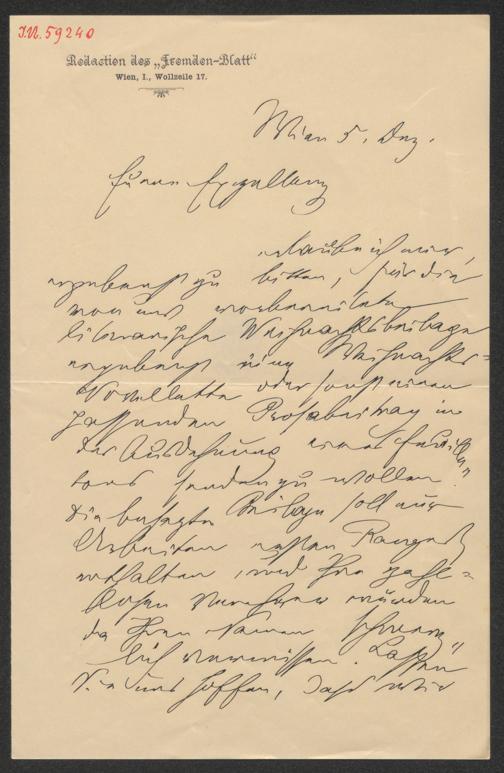 I.N. 59240
Redaction des „Fremden-Blatt“
Wien, I., Wollzeile 17.
Wien 5. Dez.
Euere Exzellenz
erlaube ich mir,
ergebenst zu bitten, für die
von uns vorbereitete
literarische Weihnachtsbeilage
ergebenst eine Weihnachts=
Novellette oder sonst einen
passenden Prosabeitrag in
der Ausdehnung eines Feuille
tons senden zu wollen.
Die besagte Beilage soll nur
Arbeiten ersten Ranges
enthalten, und Ihre zahl=
losen Verehrer würden
da Ihren Namen schmerz
lich vermissen. Lassen
Sie uns hoffen, dass wir